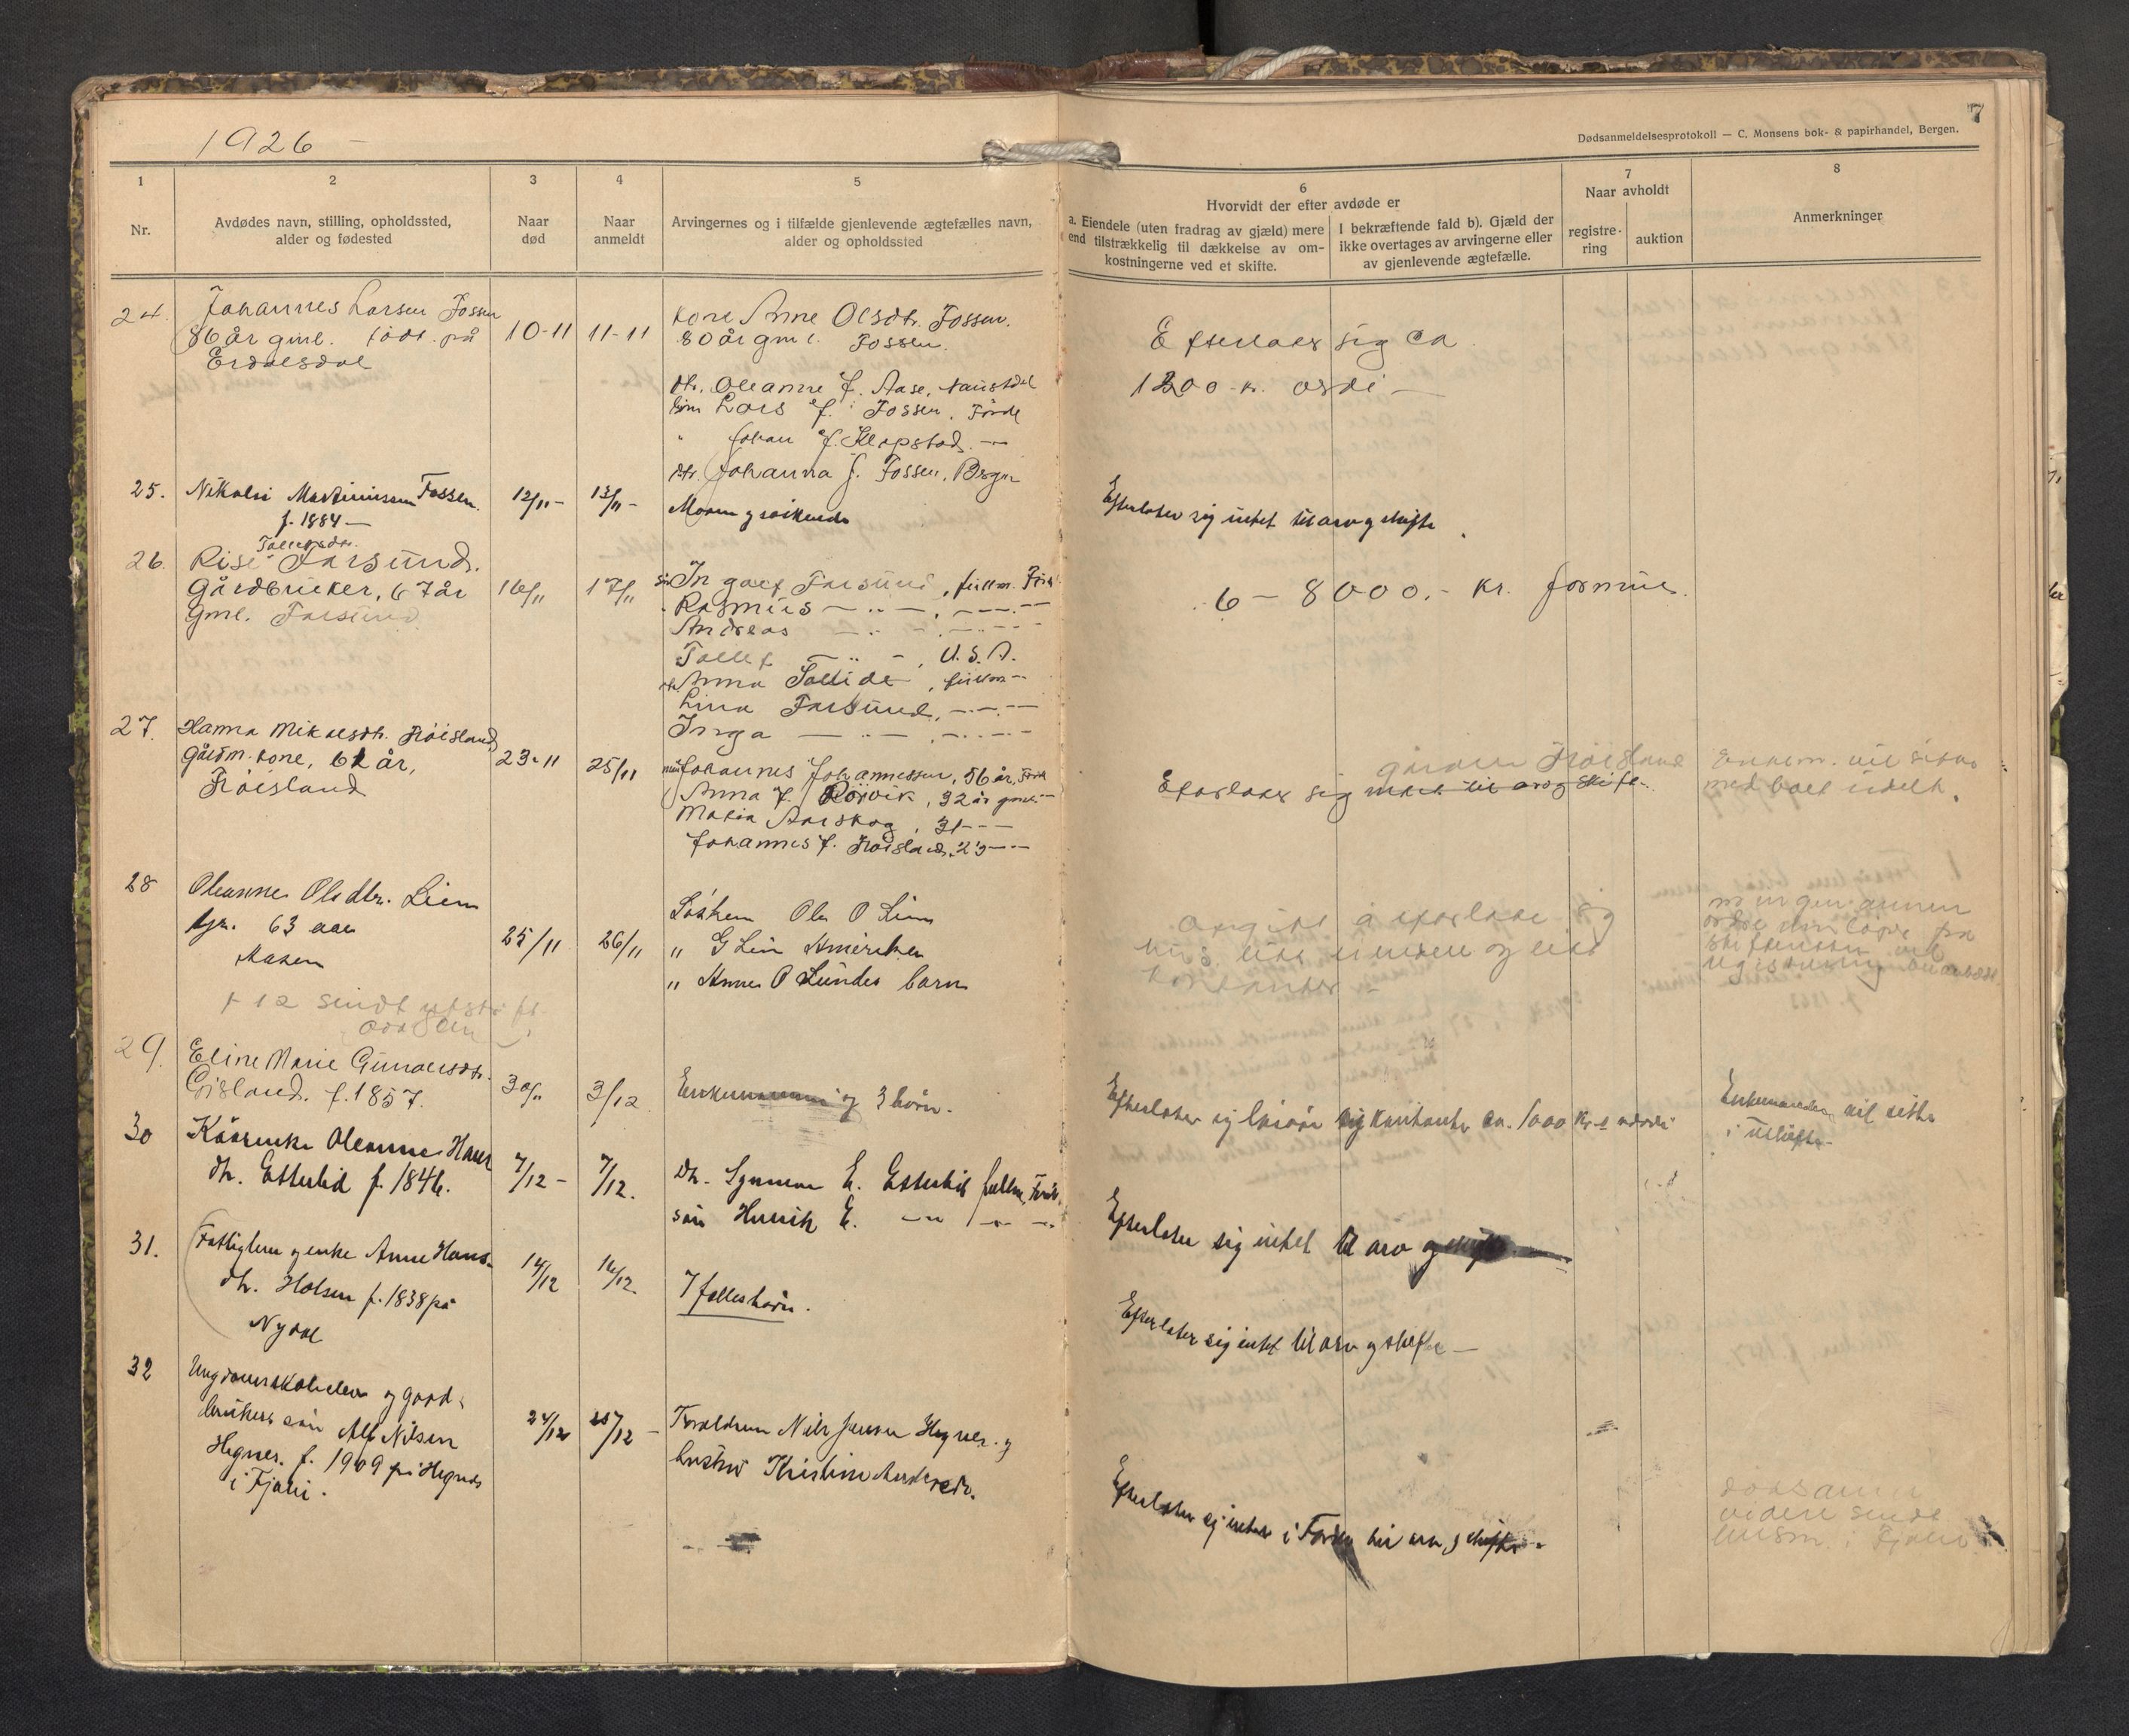 1926 –
7
Dødsanmeldelsesprotokoll — C. Monsens bok- & papirhandel, Bergen.
1
Nr.
2
Avdødes navn, stilling, opholdssted,
alder og fødested
3
Naar
død
4
Naar
anmeldt
5
Arvingernes og i tilfælde gjenlevende ægtefælles navn,
alder og opholdssted
6
Hvorvidt der efter avdøde er
a. Eiendele (uten fradrag av gjæld) mere
end tilstrækkelig til dækkelse av om-
kostningerne ved et skifte.
I bekræftende fald b). Gjæld der
ikke overtages av arvingerne eller
av gjenlevende ægtefælle.
7
Naar avholdt
registre-
ring
auktion
8
Anmerkninger
24.
Johannes Larsen Fossen
86 år gml. født på
Erdalsdal
10-11
11-11
kone Anne Olsdtr. Fossen.
80 år gml. Fossen.
dtr. Oleanne J. Aase, Naustdal
søn Lars J. Fossen, Førde
" Johan J. Klopstad –
dtr. Johanna J. Fossen, Bergen
Efterlater sig ca
1200 kr. verdi –
25.
Nikolai Martinussen Fossen.
f. 1884 –
12/11 –
13/11 –
Moren g søskende
Efterlater sig intet til arv g skifte.
26.
Rise Farsund.
Gårdbruker, 67 år
gml. Farsund
16/11
17/11
søn Ingolf Farsund, fullm. Førde
" Rasmus – " –
Andreas – " –
Tollef – " –, U.S.A.
dtr Anna Sollide, fullm –
Lina Farsund, –
Inga – " –
6 – 8000.- kr. formue.
27.
Hanna Mikalsdtr. Frøisland
gårdm. kone, 61 år,
Frøisland
23-11
25/11
man Johannes Johannessen, 56 år, Førde
Anna J. Rörvik, 32 år gml –
Maria Aarskog, 31 – –
Johannes J. Frøisland, 23 – –
gården Frøisland
Efterlater sig intet til arv og skifte.
Enkem. vil sitte
med boet udelt.
28
Oleanne Olsdtr. Liem
tjr. 63 aar
Aasen
25/11
26/11
Søsken Ole O Lien
" G Lien Amerika
" Anne O Lundes barn
Opgives å efterlate sig
hus, litt
og litt
kontanter –
+ 12 sendt
29.
Eline Marie Gunnersdtr.
Gisland. f. 1857.
30/11
3/12
Enkemannen og 3 børn.
Efterlater sig løsøre og kontanter ca. 1000 kr.s værdi
Enkemanden vil sitte
i uskifte –
30
Kårenke Oleanne Hans
dtr. Esterlid f. 1846.
7/12 –
7/12.
Dtr. E. Esterlid fullm, Førde
søn Henrik E. – " – –
Efterlater sig intet til arv g skifte
31.
Fattiglem g enke Anne Hans-
dtr. Holsen f. 1838 på
Nydal
14/12
16/12
7 fellesbørn.
Efterlater sig intet til arv g skifte –
32
Ungdomsskoleelev og gård-
brukers søn Alf Nilsen
Hegnes. f. 1909 på Hegnes
i Fjaler.
24/12
27/12 –
Foreldrene Nils Jensen Hegnes. g
hustru Kristine Andersdtr.
Efterlater sig intet i Førde til arv g skifte.
dødsanm
videre sendt
lensm. i Fjaler